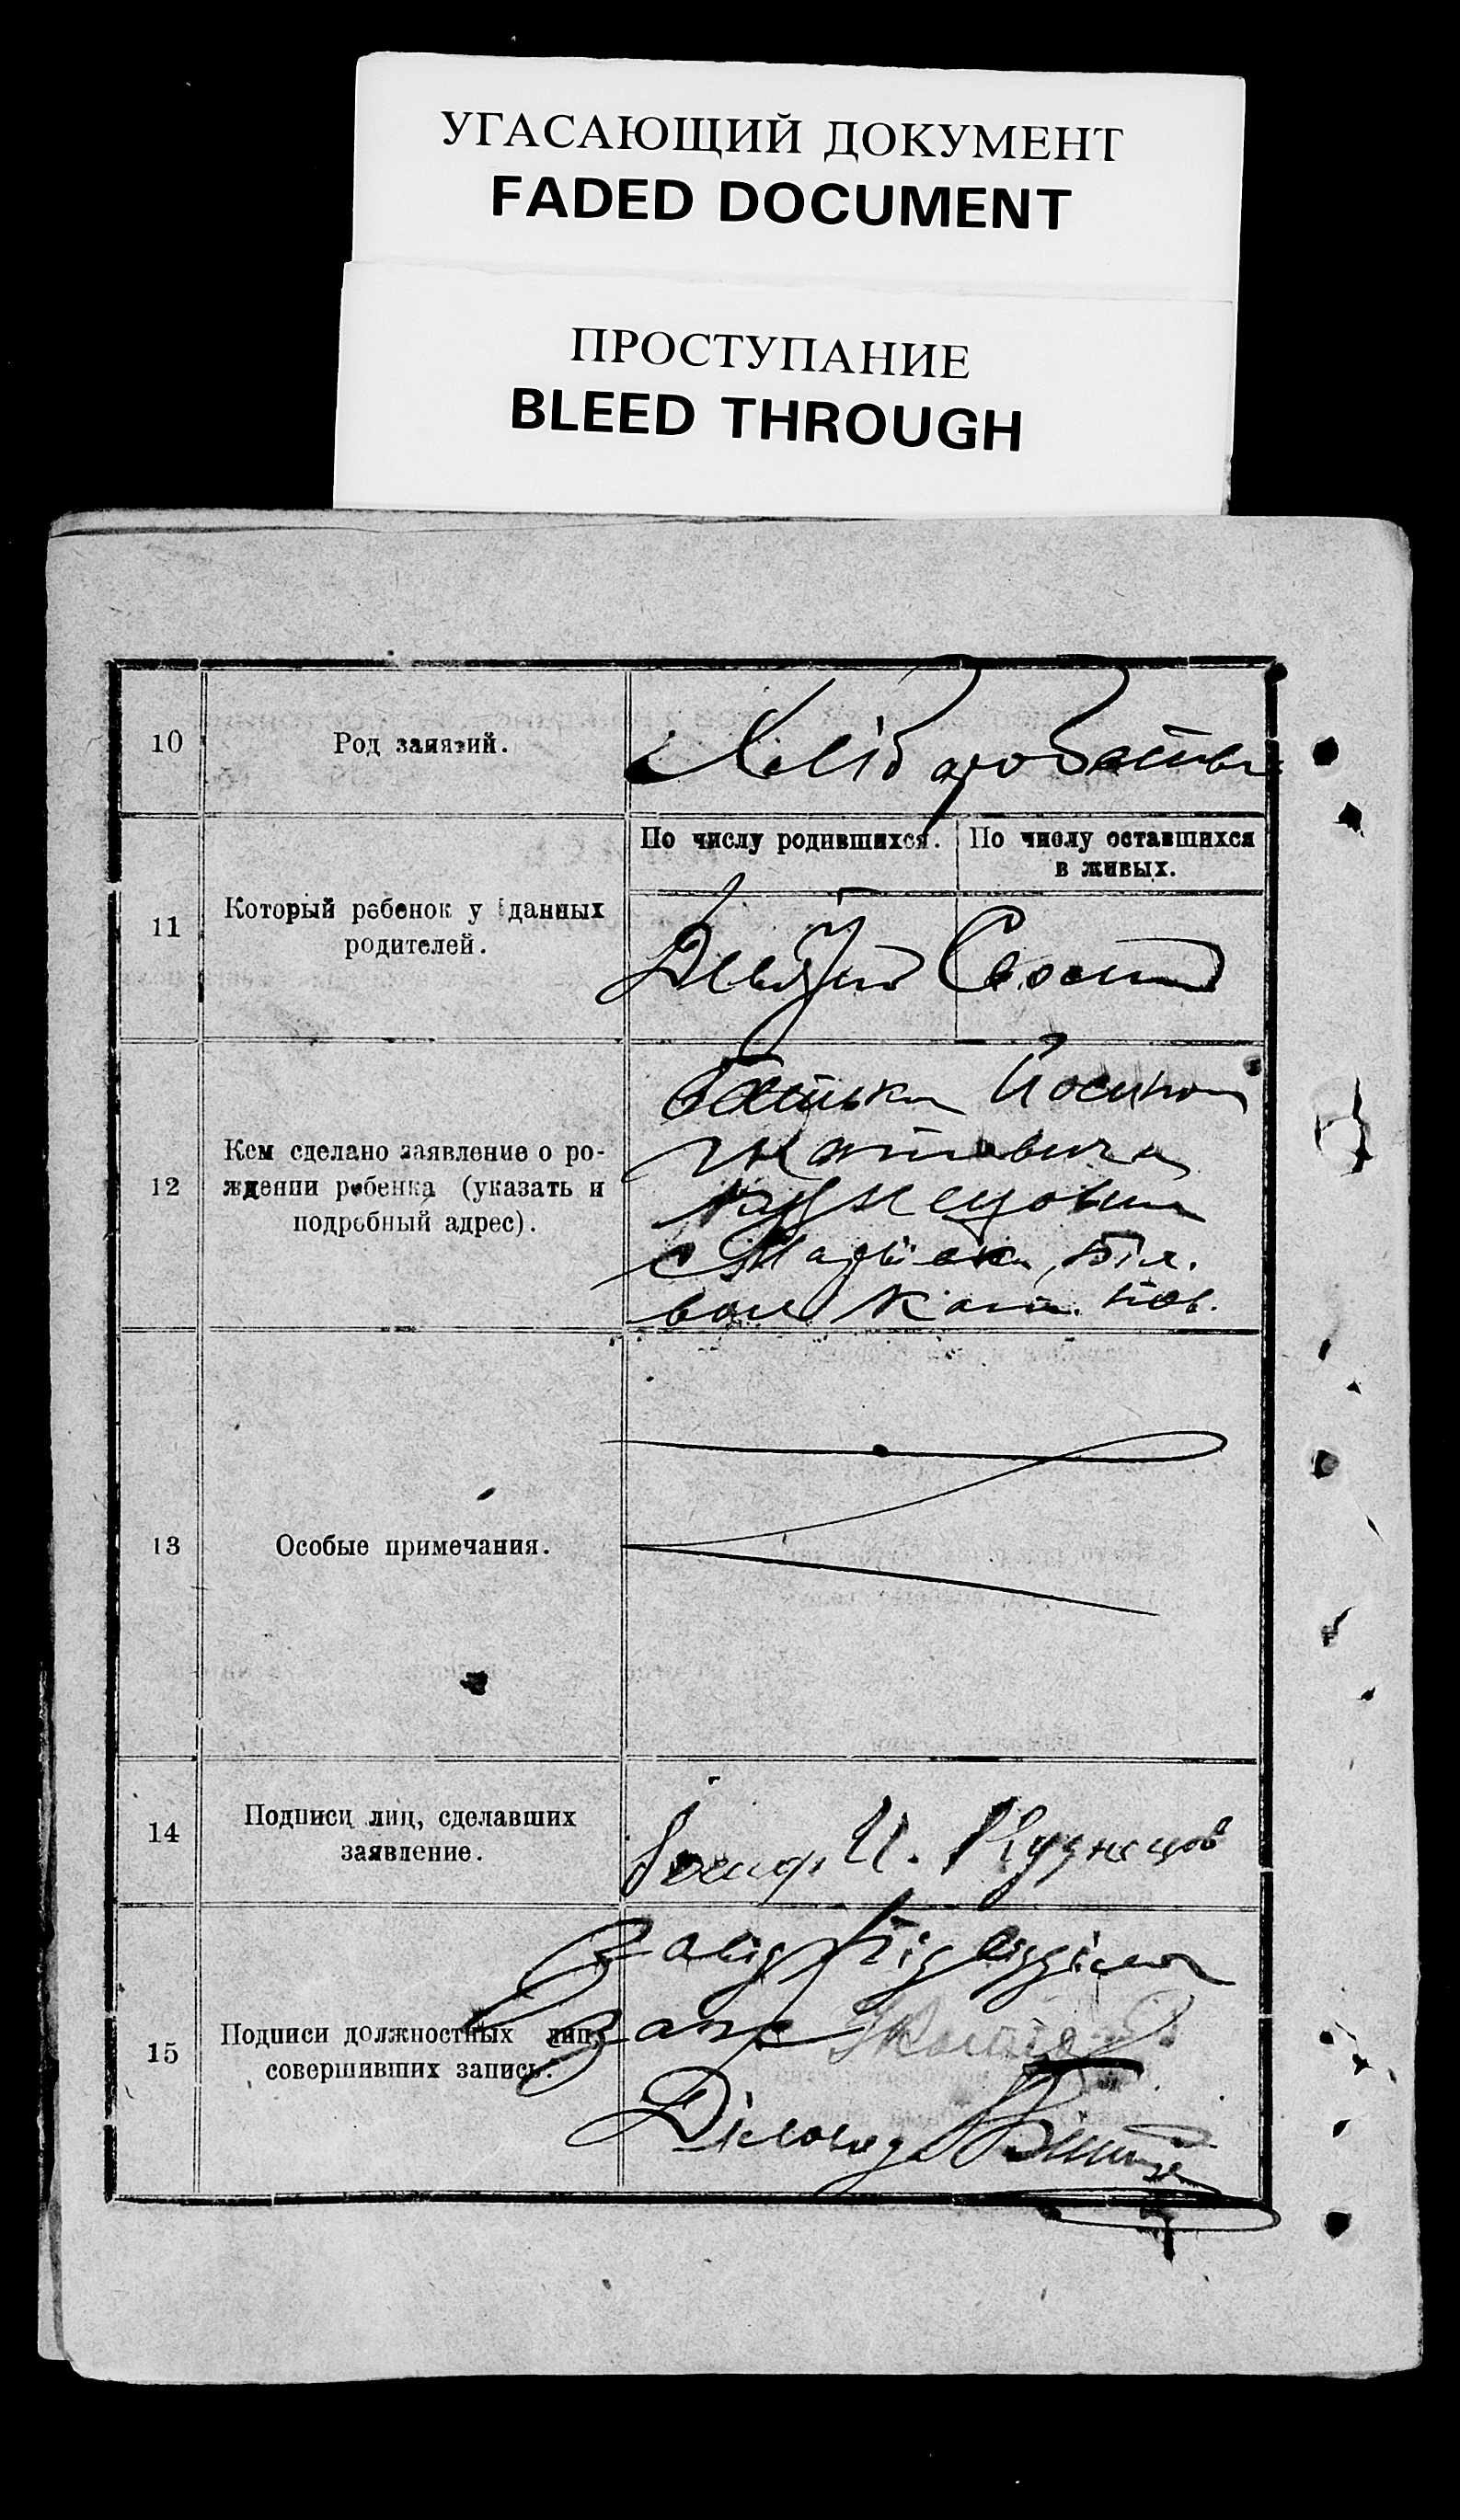 УГАСАЮЩИЙ ДОКУМЕНТ
FADED DOCUMENT
ПРОСТУПАНИЕ
BLEED THROUGH
10
Род занятий.
Хліборобство
11
Который ребенок у данных
родителей.
По числу родившихся.
По числу оставшихся
в живых.
Шоста
12
Кем сделано заявление о ро-
ждении ребенка (указать и
подробный адрес).
Батьком Йосипом
Кузнецовим
с. Біл.
вол. Кат. пов.
13
Особые примечания.
14
Подписи лиц, сделавших
заявление.
Иосиф И. Кузнецов
15
Подписи должностных лиц,
совершивших запись.
Завід. Підвідділом
Загс
Діловод